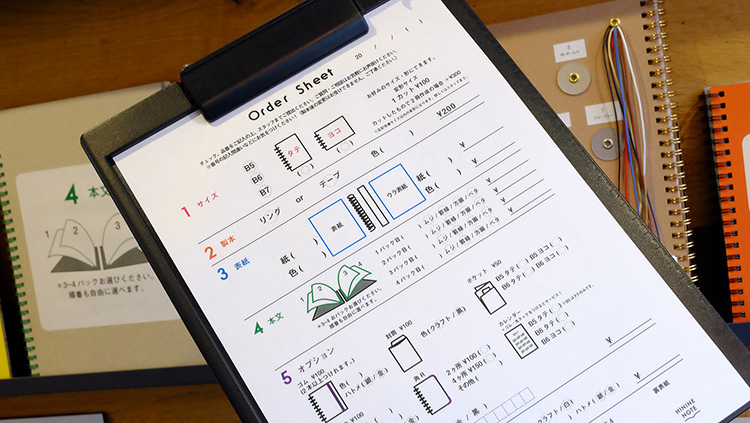 Order Sheet
20 / / ( )
チェック、品番をご記入の上、スタッフまでご提出ください。ご質問・ご相談はお気軽にお声掛けください。
1 サイズ
B5
B6
B7
タテ
( )
ヨコ
( )
お好みのサイズ・形にできます。
変形サイズ
1カット ¥100
カットしたもので2冊作成の場合 +¥200
¥200
2 製本
リング or テープ
色( )
¥
3 表紙
紙( )
色( )
表紙
ウラ表紙
紙( )
色( )
¥
4 本文
1 2 3 4
※3~4パックお選びください。
順番も自由に選べます。
1パック目( )ムジ/罫線/方眼/ベタ
2パック目( )ムジ/罫線/方眼/ベタ
3パック目( )ムジ/罫線/方眼/ベタ
4パック目( )ムジ/罫線/方眼/ベタ
¥
5 オプション
ゴム ¥100
(2本以上つけれます。)
色( )
ハトメ(銀/金)
封筒 ¥100
色(クラフト/黒)
ポケット ¥50
B5 タテ( ) B5 ヨコ( )
B6 タテ( ) B6 ヨコ( )
カレンダー
B5 タテ( )
B6 タテ( ) B6 ヨコ( )
角丸
2ヶ所 ¥100( )
4ヶ所 ¥150( )
その他( )
¥
クラフト/白)
ハトメ(銀/金)
裏表紙
HININE
NOTE
4 本文
1 2 3
※3~4パックお選びください。
順番も自由に選べます。
HININE
NOTE